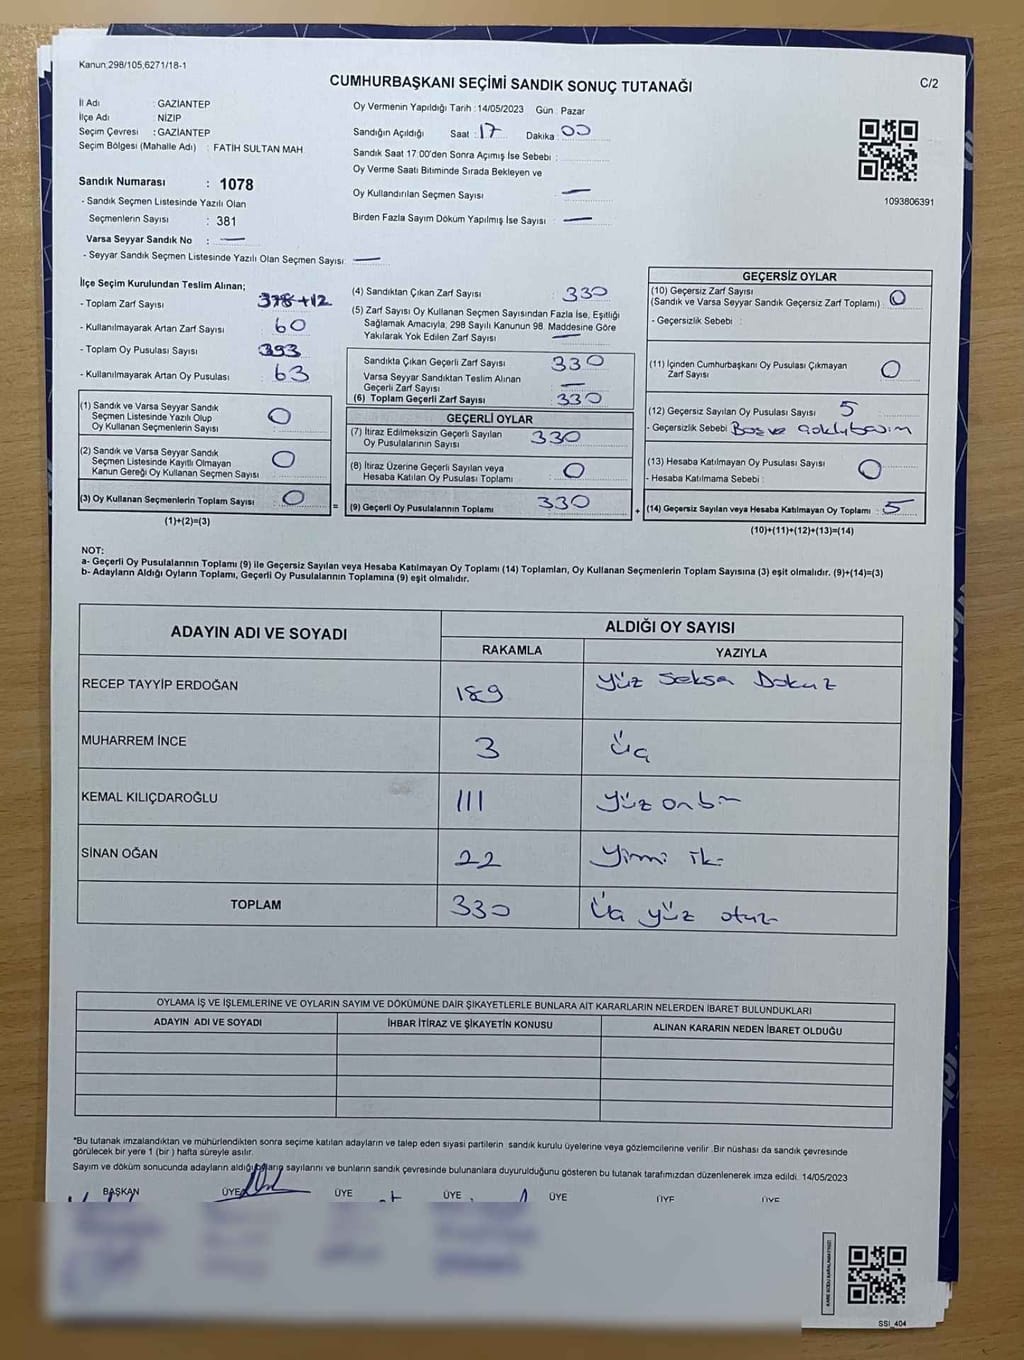 Kanun,298/105,6271/18-1
CUMHURBAŞKANI SEÇİMİ SANDIK SONUÇ TUTANAĞI
C/2
İl Adı : GAZİANTEP
İlçe Adı : NİZİP
Seçim Çevresi : GAZİANTEP
Seçim Bölgesi (Mahalle Adı) : FATİH SULTAN MAH.
Sandık Numarası : 1078
- Sandık Seçmen Listesinde Yazılı Olan
Seçmenlerin Sayısı : 381
Varsa Seyyar Sandık No : —
- Seyyar Sandık Seçmen Listesinde Yazılı Olan Seçmen Sayısı: —
Oy Vermenin Yapıldığı Tarih : 14/05/2023 Gün : Pazar
Sandığın Açıldığı Saat : 17 Dakika : 00
Sandık Saat 17:00'den Sonra Açımış İse Sebebi :
Oy Verme Saati Bitiminde Sırada Bekleyen ve
Oy Kullandırılan Seçmen Sayısı —
Birden Fazla Sayım Döküm Yapılmış İse Sayısı : —
1093806391
İlçe Seçim Kurulundan Teslim Alınan;
- Toplam Zarf Sayısı 378+12
- Kullanılmayarak Artan Zarf Sayısı 60
- Toplam Oy Pusulası Sayısı 393
- Kullanılmayarak Artan Oy Pusulası 63
(1) Sandık ve Varsa Seyyar Sandık
Seçmen Listesinde Yazılı Olup
Oy Kullanan Seçmenlerin Sayısı 0
(2) Sandık ve Varsa Seyyar Sandık
Seçmen Listesinde Kayıtlı Olmayan
Kanun Gereği Oy Kullanan Seçmen Sayısı 0
(3) Oy Kullanan Seçmenlerin Toplam Sayısı 0
(1)+(2)=(3)
=
(4) Sandıktan Çıkan Zarf Sayısı 330
(5) Zarf Sayısı Oy Kullanan Seçmen Sayısından Fazla İse, Eşitliği
Sağlamak Amacıyla, 298 Sayılı Kanunun 98. Maddesine Göre
Yakılarak Yok Edilen Zarf Sayısı —
Sandıkta Çıkan Geçerli Zarf Sayısı 330
Varsa Seyyar Sandıktan Teslim Alınan
Geçerli Zarf Sayısı —
(6) Toplam Geçerli Zarf Sayısı 330
GEÇERLİ OYLAR
(7) İtiraz Edilmeksizin Geçerli Sayılan
Oy Pusulalarının Sayısı 330
(8) İtiraz Üzerine Geçerli Sayılan veya
Hesaba Katılan Oy Pusulaları Toplamı 0
(9) Geçerli Oy Pusulalarının Toplamı 330
+
GEÇERSİZ OYLAR
(10) Geçersiz Zarf Sayısı
(Sandık ve Varsa Seyyar Sandık Geçersiz Zarf Toplamı) 0
- Geçersizlik Sebebi :
(11) İçinden Cumhurbaşkanı Oy Pusulası Çıkmayan
Zarf Sayısı 0
(12) Geçersiz Sayılan Oy Pusulası Sayısı 5
- Geçersizlik Sebebi Boş ve
(13) Hesaba Katılmayan Oy Pusulası Sayısı 0
- Hesaba Katılmama Sebebi :
(14) Geçersiz Sayılan veya Hesaba Katılmayan Oy Toplamı : 5
(10)+(11)+(12)+(13)=(14)
NOT:
a- Geçerli Oy Pusulalarının Toplamı (9) ile Geçersiz Sayılan veya Hesaba Katılmayan Oy Toplamı (14) Toplamları, Oy Kullanan Seçmenlerin Toplam Sayısına (3) eşit olmalıdır. (9)+(14)=(3)
b- Adayların Aldığı Oyların Toplamı, Geçerli Oy Pusulalarının Toplamına (9) eşit olmalıdır.
ADAYIN ADI VE SOYADI
ALDIĞI OY SAYISI
RAKAMLA YAZIYLA
RECEP TAYYİP ERDOĞAN 189 Yüz Seksa Dokuz
MUHARREM İNCE 3 Üç
KEMAL KILIÇDAROĞLU 111 Yüz onbir
SİNAN OĞAN 22 Yirmi iki
TOPLAM 330 Üç yüz otuz
OYLAMA İŞ VE İŞLEMLERİNE VE OYLARIN SAYIM VE DÖKÜMÜNE DAİR ŞİKAYETLERLE BUNLARA AİT KARARLARIN NELERDEN İBARET BULUNDUKLARI
ADAYIN ADI VE SOYADI İHBAR İTİRAZ VE ŞİKAYETİN KONUSU ALINAN KARARIN NEDEN İBARET OLDUĞU
*Bu tutanak imzalandıktan ve mühürlendikten sonra seçime katılan adayların ve talep eden siyasi partilerin sandık kurulu üyelerine veya gözlemcilerine verilir. Bir nüshası da sandık çevresinde
görülecek bir yere 1 (bir ) hafta süreyle asılır.
Sayım ve döküm sonucunda adayların aldığı oyların sayılarını ve bunların sandık çevresinde bulunanlara duyurulduğunu gösteren bu tutanak tarafımızdan düzenlenerek imza edildi. 14/05/2023
BAŞKAN ÜYE ÜYE ÜYE ÜYE ÜYE ÜYE
SSİ_404